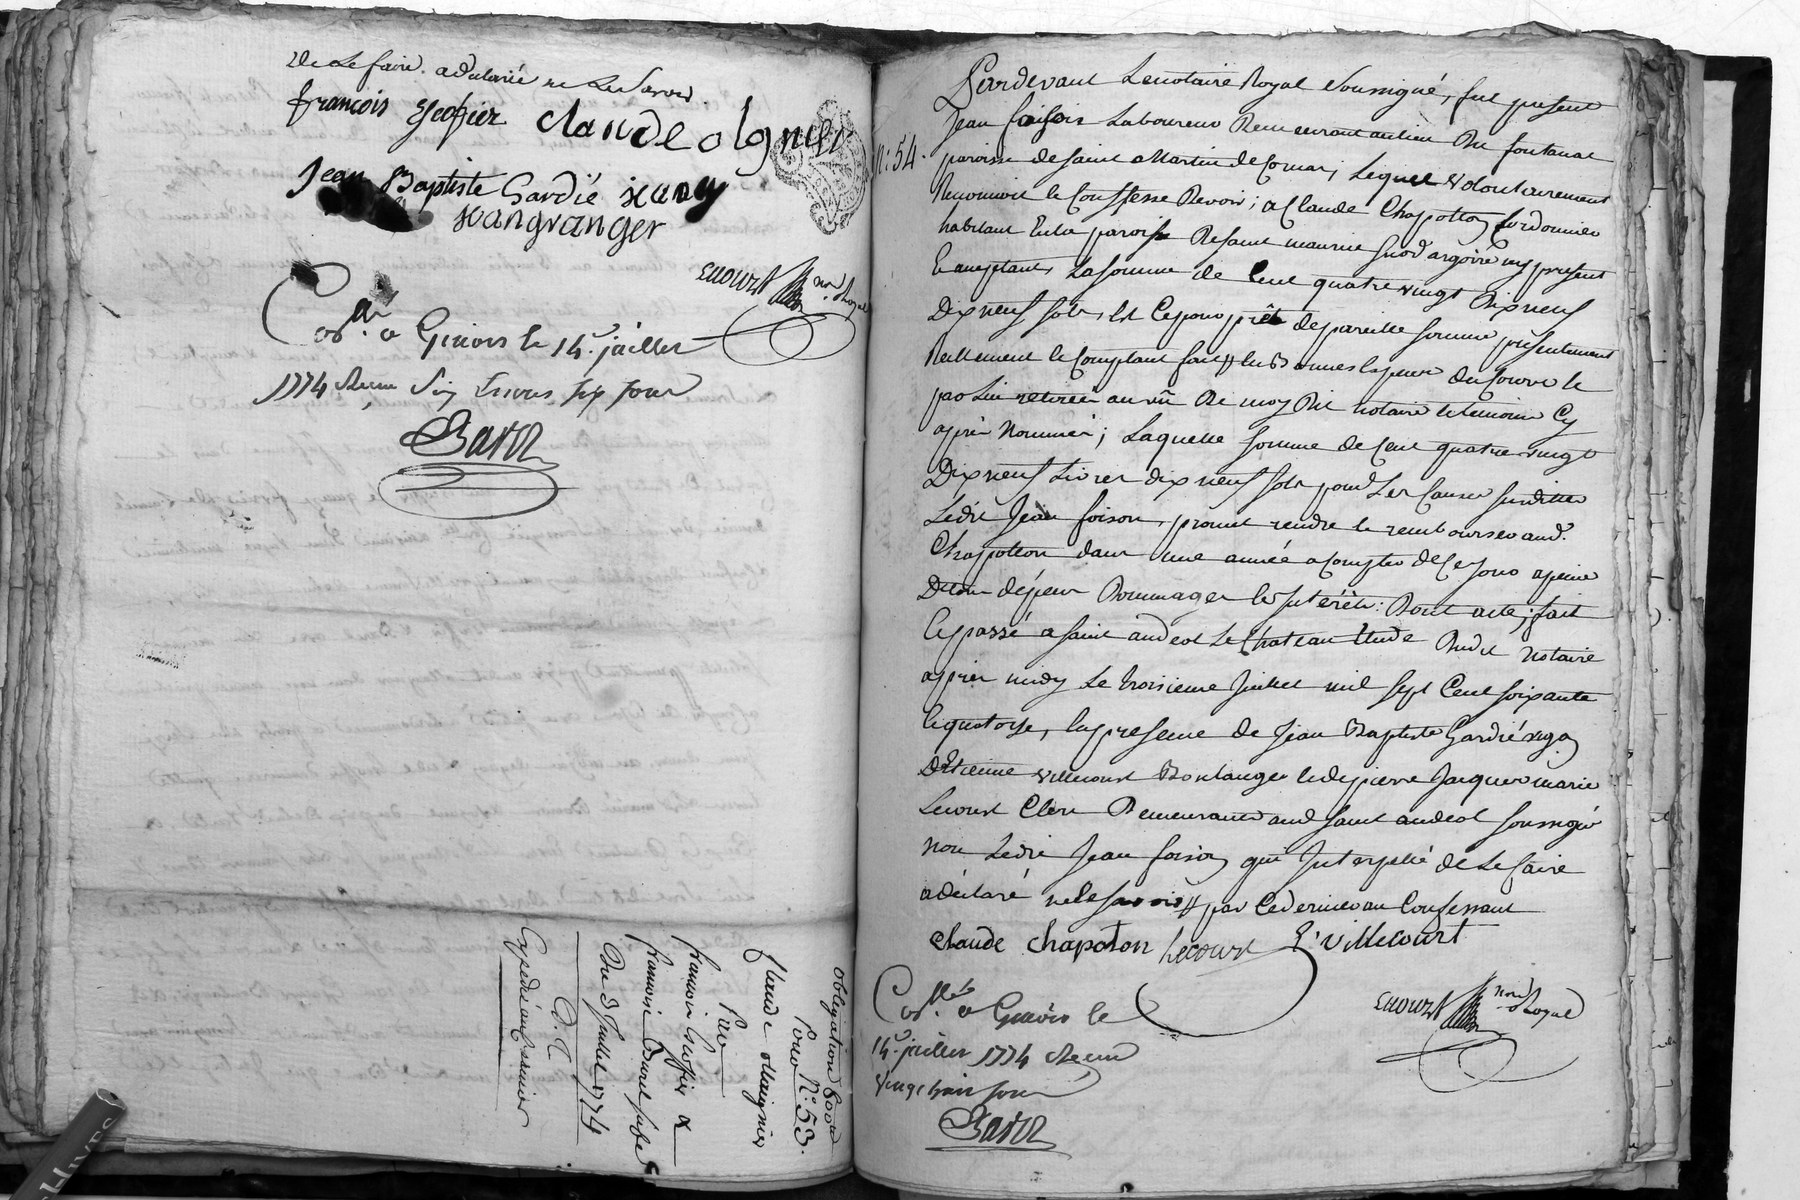 de le faire a declaré ne le savoir
françois escofier claude olagnier
Jean Baptiste Gardié
Jean granger
Lecourt nore. Royal
Con.lé a Givors le 14e. juillet
1774 Recu six livres six sous
Baron
obligation 600tt
Pour N.: 53.
Claude ollagnier
Par
françois Escofier &
francoise Buret sa fe
Du 3 Juillet 1774
C. C.
Expédié au Creancier
N.: 54.
Pardevant Le notaire Royal soussigné, fut present
Jean foison Laboureur Demeurant au lieu de fontanat
paroisse de Saint Martin de Cornas; Lequel volontairement
Reconnoit & Confesse Devoir; a Claude Chapotton Cordonnier
habitant En la paroisse De saint maurice sur d'argoire icy present
& acceptant, La somme de Cent quatre vingt Dix neuf
Dix neuf sols, Et Ce pour prêt de pareille somme presentement
Reellement & Comptant fait # en Bonnes Especes du Cours &
par Lui retirée au vû De moy Dit notaire & temoins Cy
après Nommés; Laquelle somme de Cent quatre vingt
Dix neuf Livres dix neuf sols pour Les Causes susdittes
Ledit Jean foison, promet rendre & rembourser aud.
Chapotton dans une année a Compter de Ce jour a peine
De tous dépens Dommages & Intérêts: Dont acte; fait
& passé a saint andeol Le Chateau Etude Dudit Notaire
après midy Le troisieme Juillet mil sept Cent soixante
& quatorze, En presence de Jean Baptiste Gardié
D'Etienne villecourt Boulanger & de pierre Jacques marie
Lecourt Clerc Demeurants aud. saint andeol soussignés
non Ledit Jean foison qui Interpellé de Le faire
a déclaré ne Le savoir # par Ce dernier au Confessant
claude chapoton Lecourt E. villecourt
Lecourt nore. Royal
Con.lé a Givors le
14e. juillet 1774 Recu
vingt huit sous
Baron